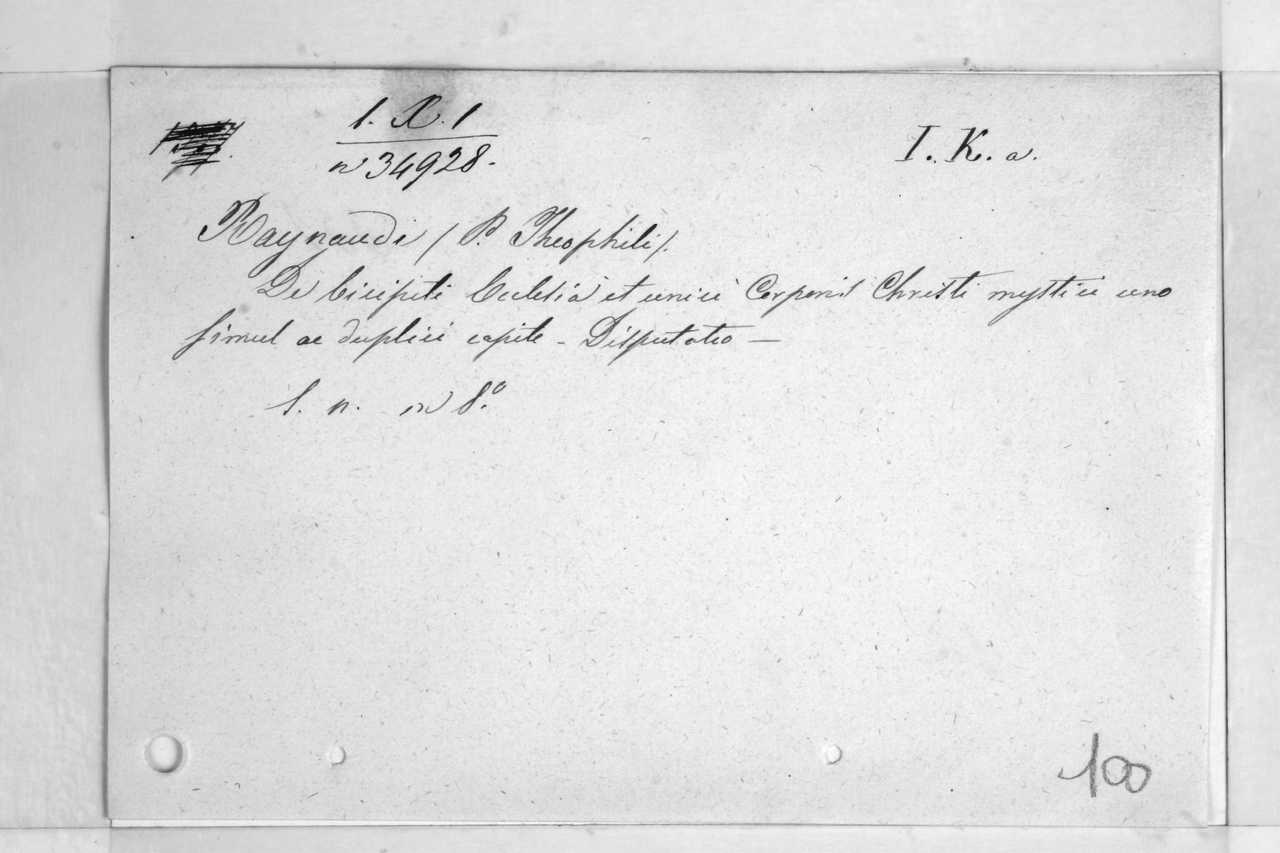 1. X. 1
n 34928.
I. K. a.
Raynaudi (P. Theophili).
De bicipiti Ecclesia et unici Corporis Christi mystici uno
simul ac duplici capite - Disputatio —
s. n. in 8.º
100